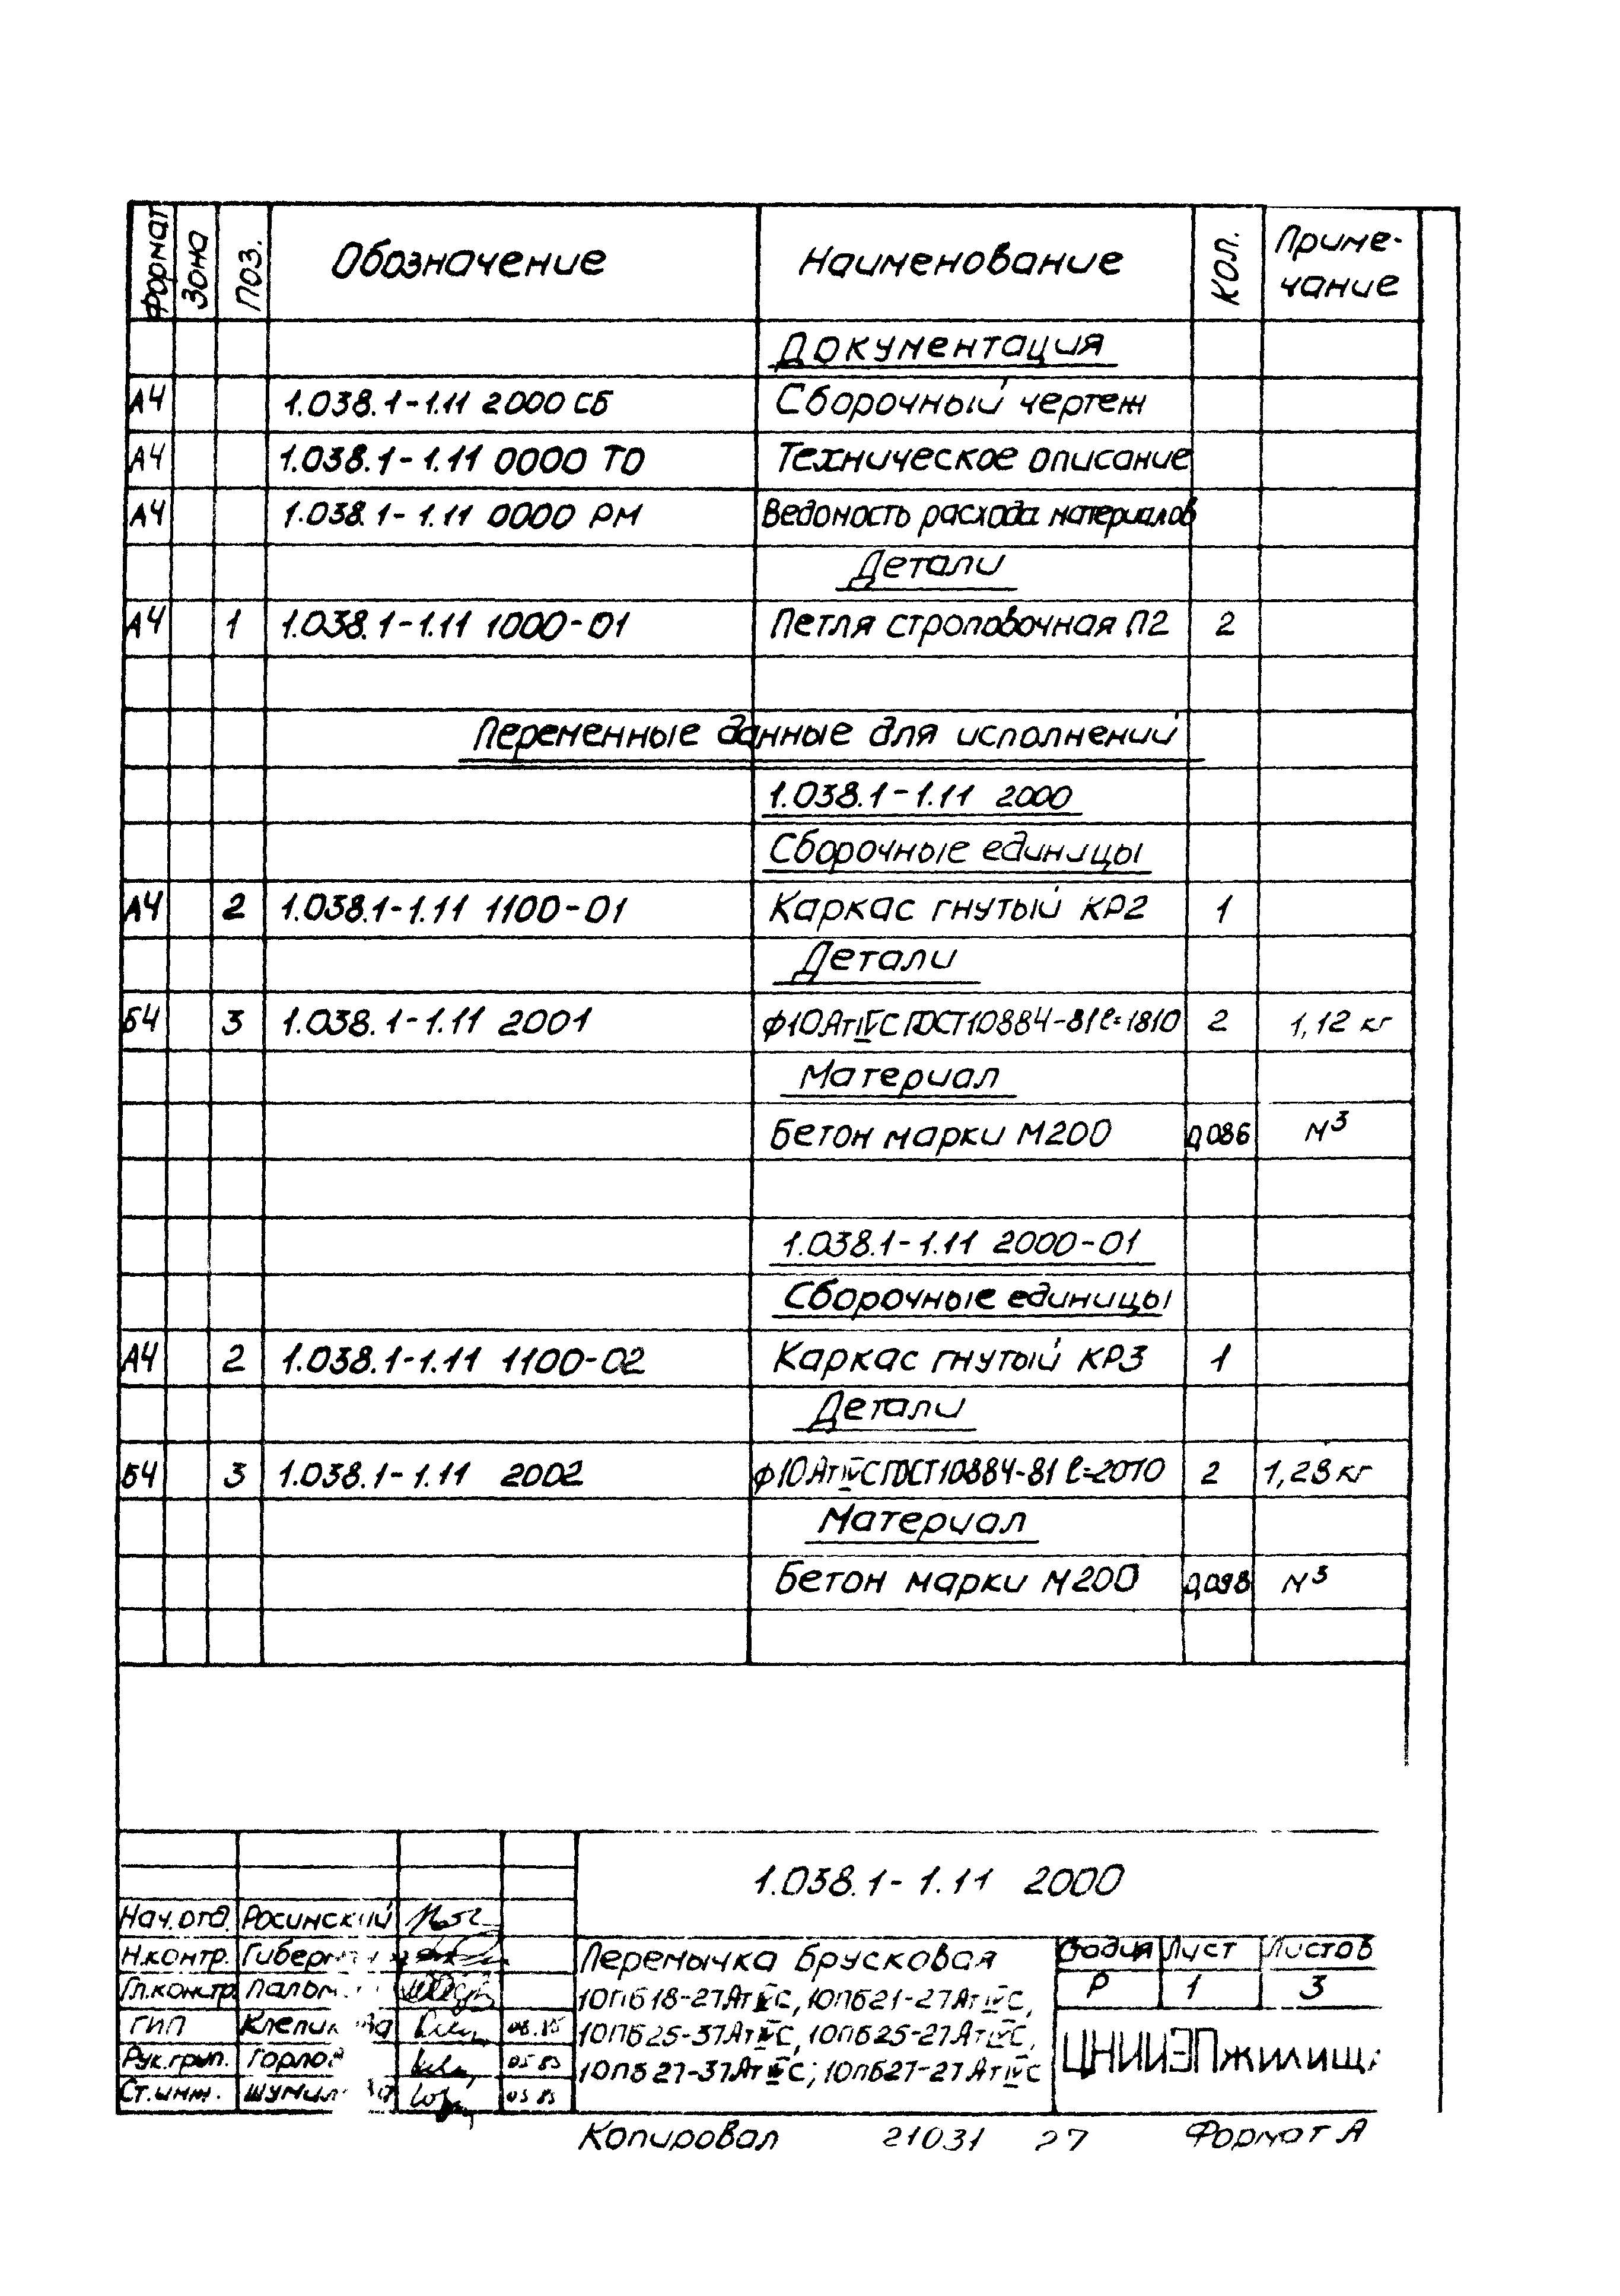 Формат Зона Поз. Обозначение Наименование Кол. Приме-
чание
Документация
А4 1.038.1-1.11 2000 СБ Сборочный чертеж
А4 1.038.1-1.11 0000 ТО Техническое описание
А4 1.038.1-1.11 0000 РМ Ведомость расхода материалов
Детали
А4 1 1.038.1-1.11 1000-01 Петля строповочная П2 2
Переменные данные для исполнений
1.038.1-1.11 2000
Сборочные единицы
А4 2 1.038.1-1.11 1100-01 Каркас гнутый КР2 1
Детали
Б4 3 1.038.1-1.11 2001 ф10АтIVС ГОСТ10884-81 ℓ=1810 2 1,12 кг
Материал
Бетон марки М200 0,086 м³
1.038.1-1.11 2000-01
Сборочные единицы
А4 2 1.038.1-1.11 1100-02 Каркас гнутый КР3 1
Детали
Б4 3 1.038.1-1.11 2002 ф10АтIVС ГОСТ10884-81 ℓ=2070 2 1,28 кг
Материал
Бетон марки М200 0,098 м³
1.038.1-1.11 2000
Нач.отд. Росинский
Н.контр.
Гл.констр.
ГИП
Рук.груп. 05 83
Ст.инж. 05 83
Перемычка брусковая
10ПБ18-27АтIVС, 10ПБ21-27АтIVС,
10ПБ25-37АтIVС, 10ПБ25-27АтIVС,
10ПБ27-37АтIVС; 10ПБ27-27АтIVС
Стадия Лист Листов
Р 1 3
ЦНИИЭПжилищ
Копировал 21031 27 Формат А